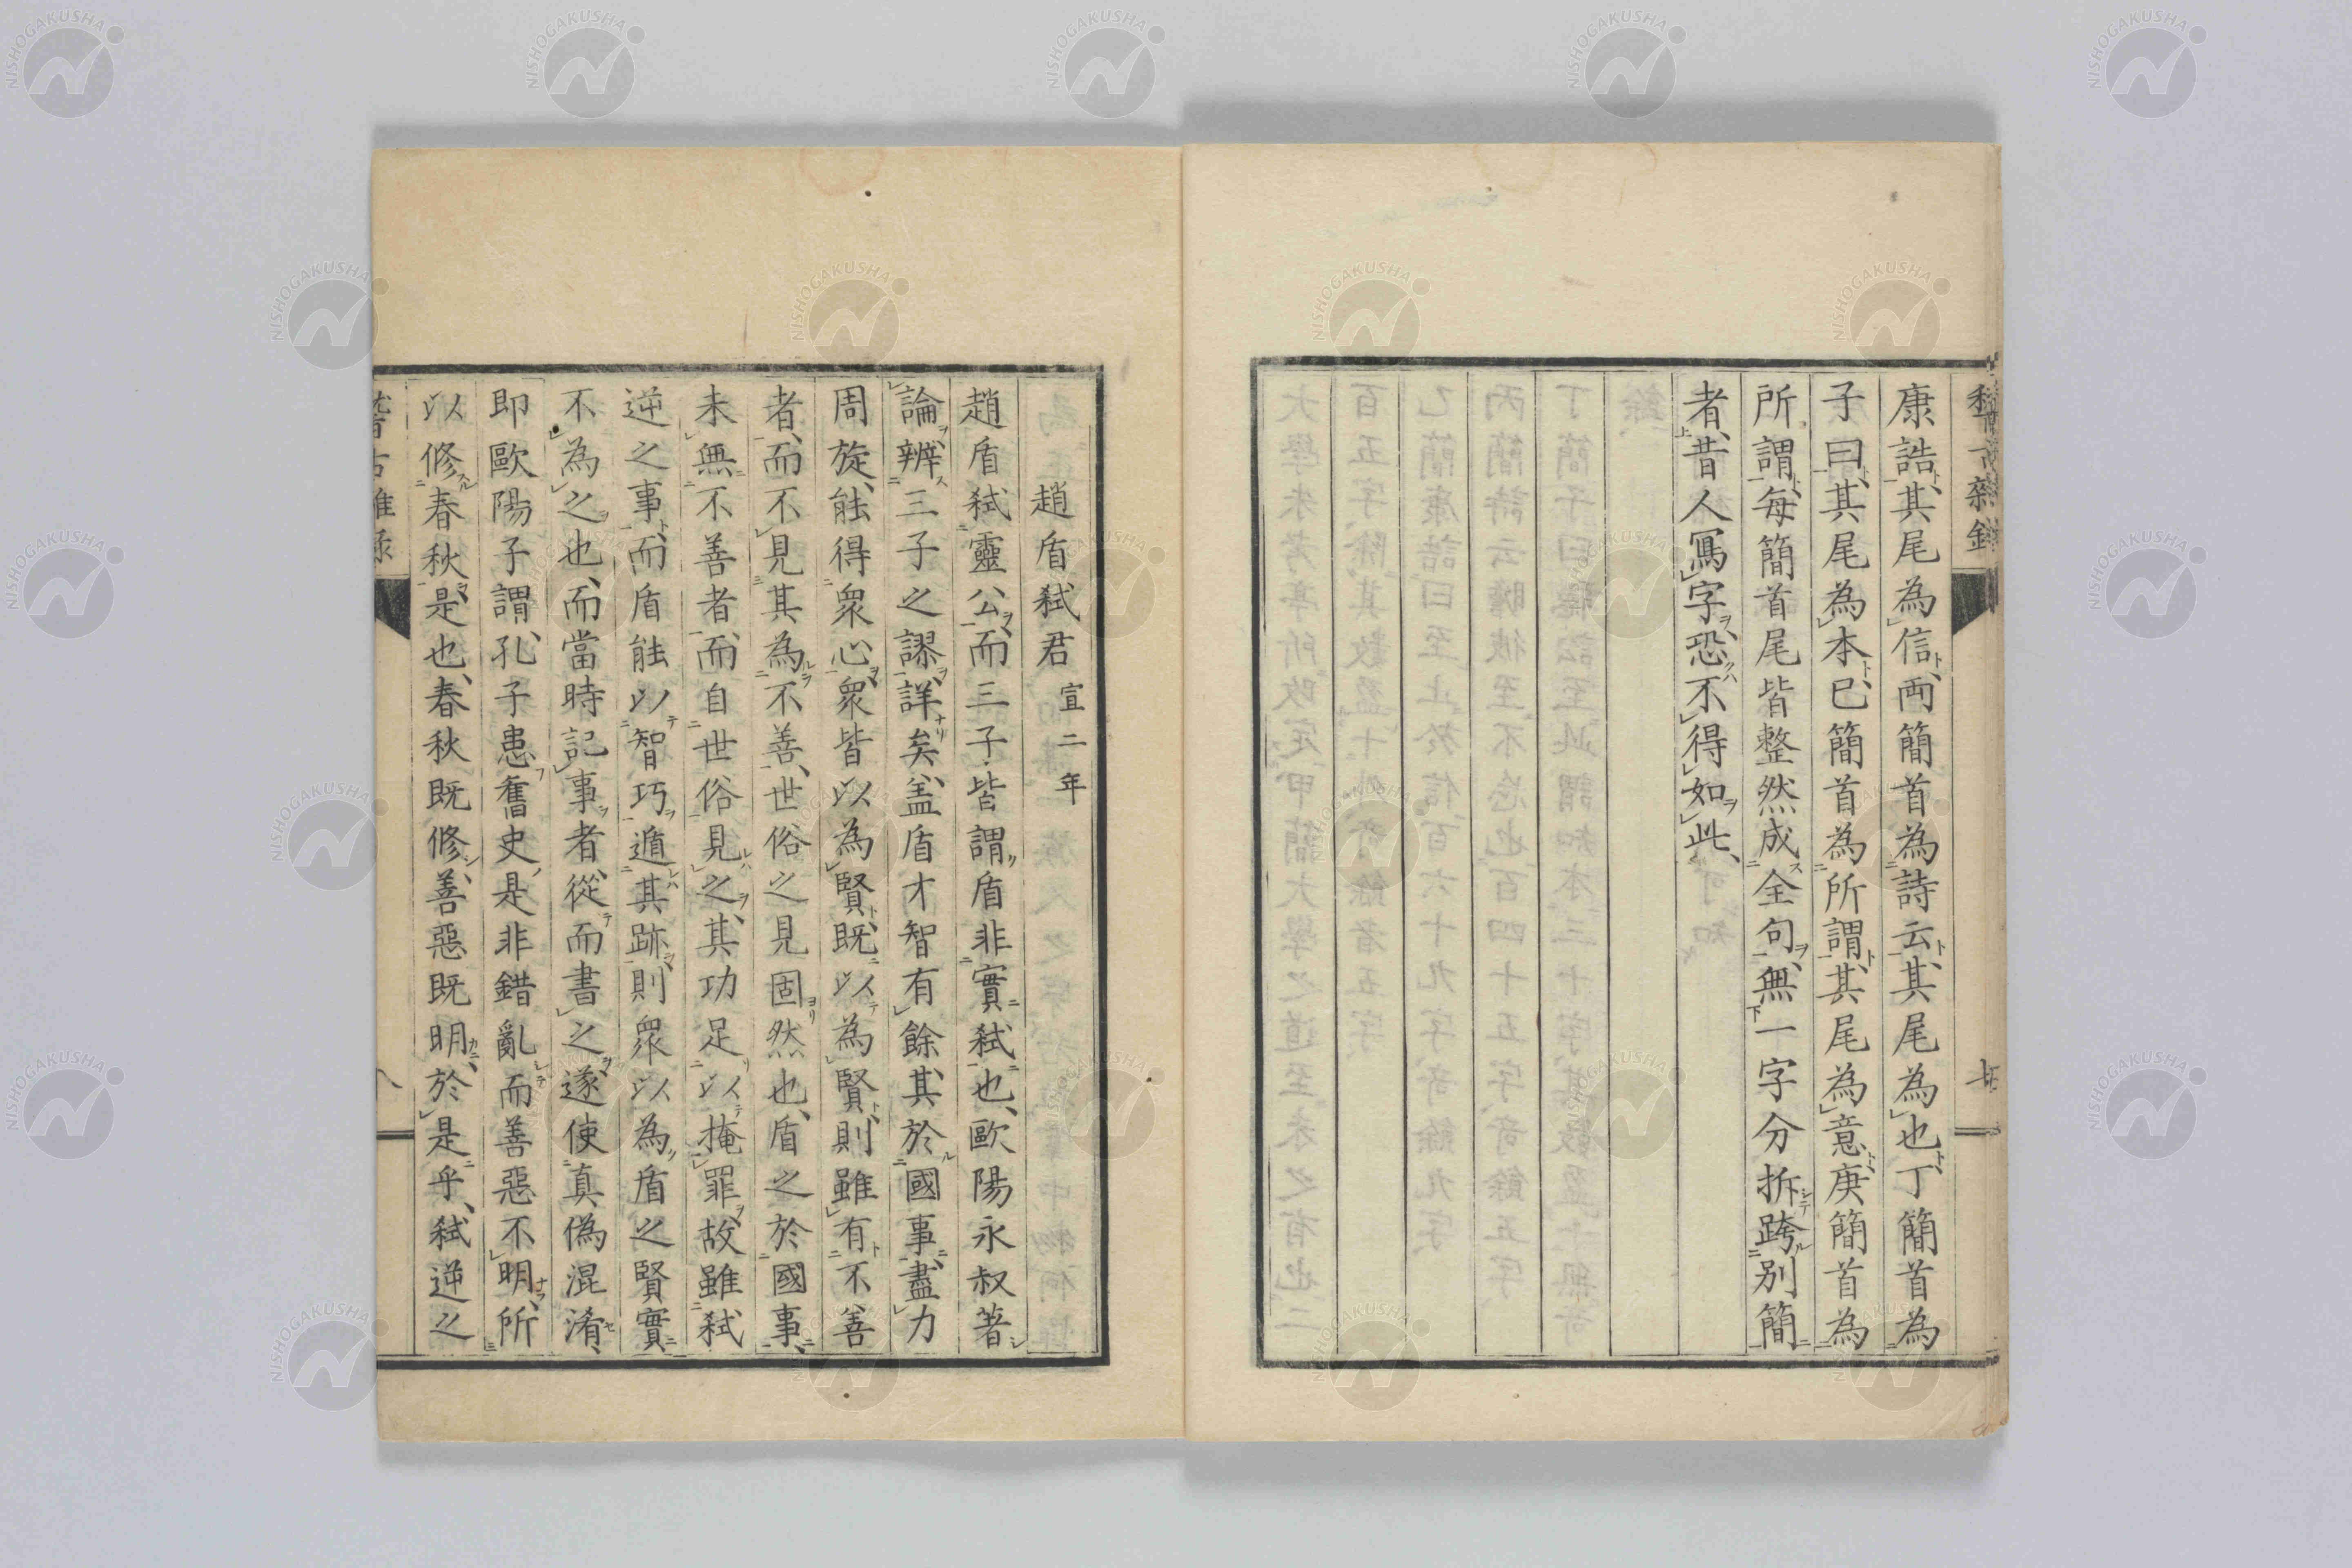 康誥、其尾為信、両簡首為詩云、其尾為也、丁簡首為
子曰、其尾為本、已簡首為所謂、其尾為意、庚簡首為
所謂、每簡首尾皆整然成全句、無一字分拆跨別簡
者、昔人寫字、恐不得如此、
趙盾弒君 宣二年
趙盾弒靈公、而三子皆謂盾非實弒也、歐陽永叔著
論辨三子之謬、詳矣、盖盾才智有餘、其於國事、盡力
周旋、能得衆心、衆皆以為賢、既以為賢、則雖有不善
者、而不見其為不善、世俗之見固然也、盾之於國事、
未無不善者、而自世俗見之、其功足以掩罪、故雖弒
逆之事、而盾能以智巧遁其跡、則衆以為盾之賢實
不為之也、而當時記事者、從而書之、遂使真偽混淆、
即歐陽子謂、孔子患舊史是非錯亂而善惡不明、所
以修春秋是也、春秋既修、善惡既明、於是乎、弒逆之
NISHOGAKUSHA